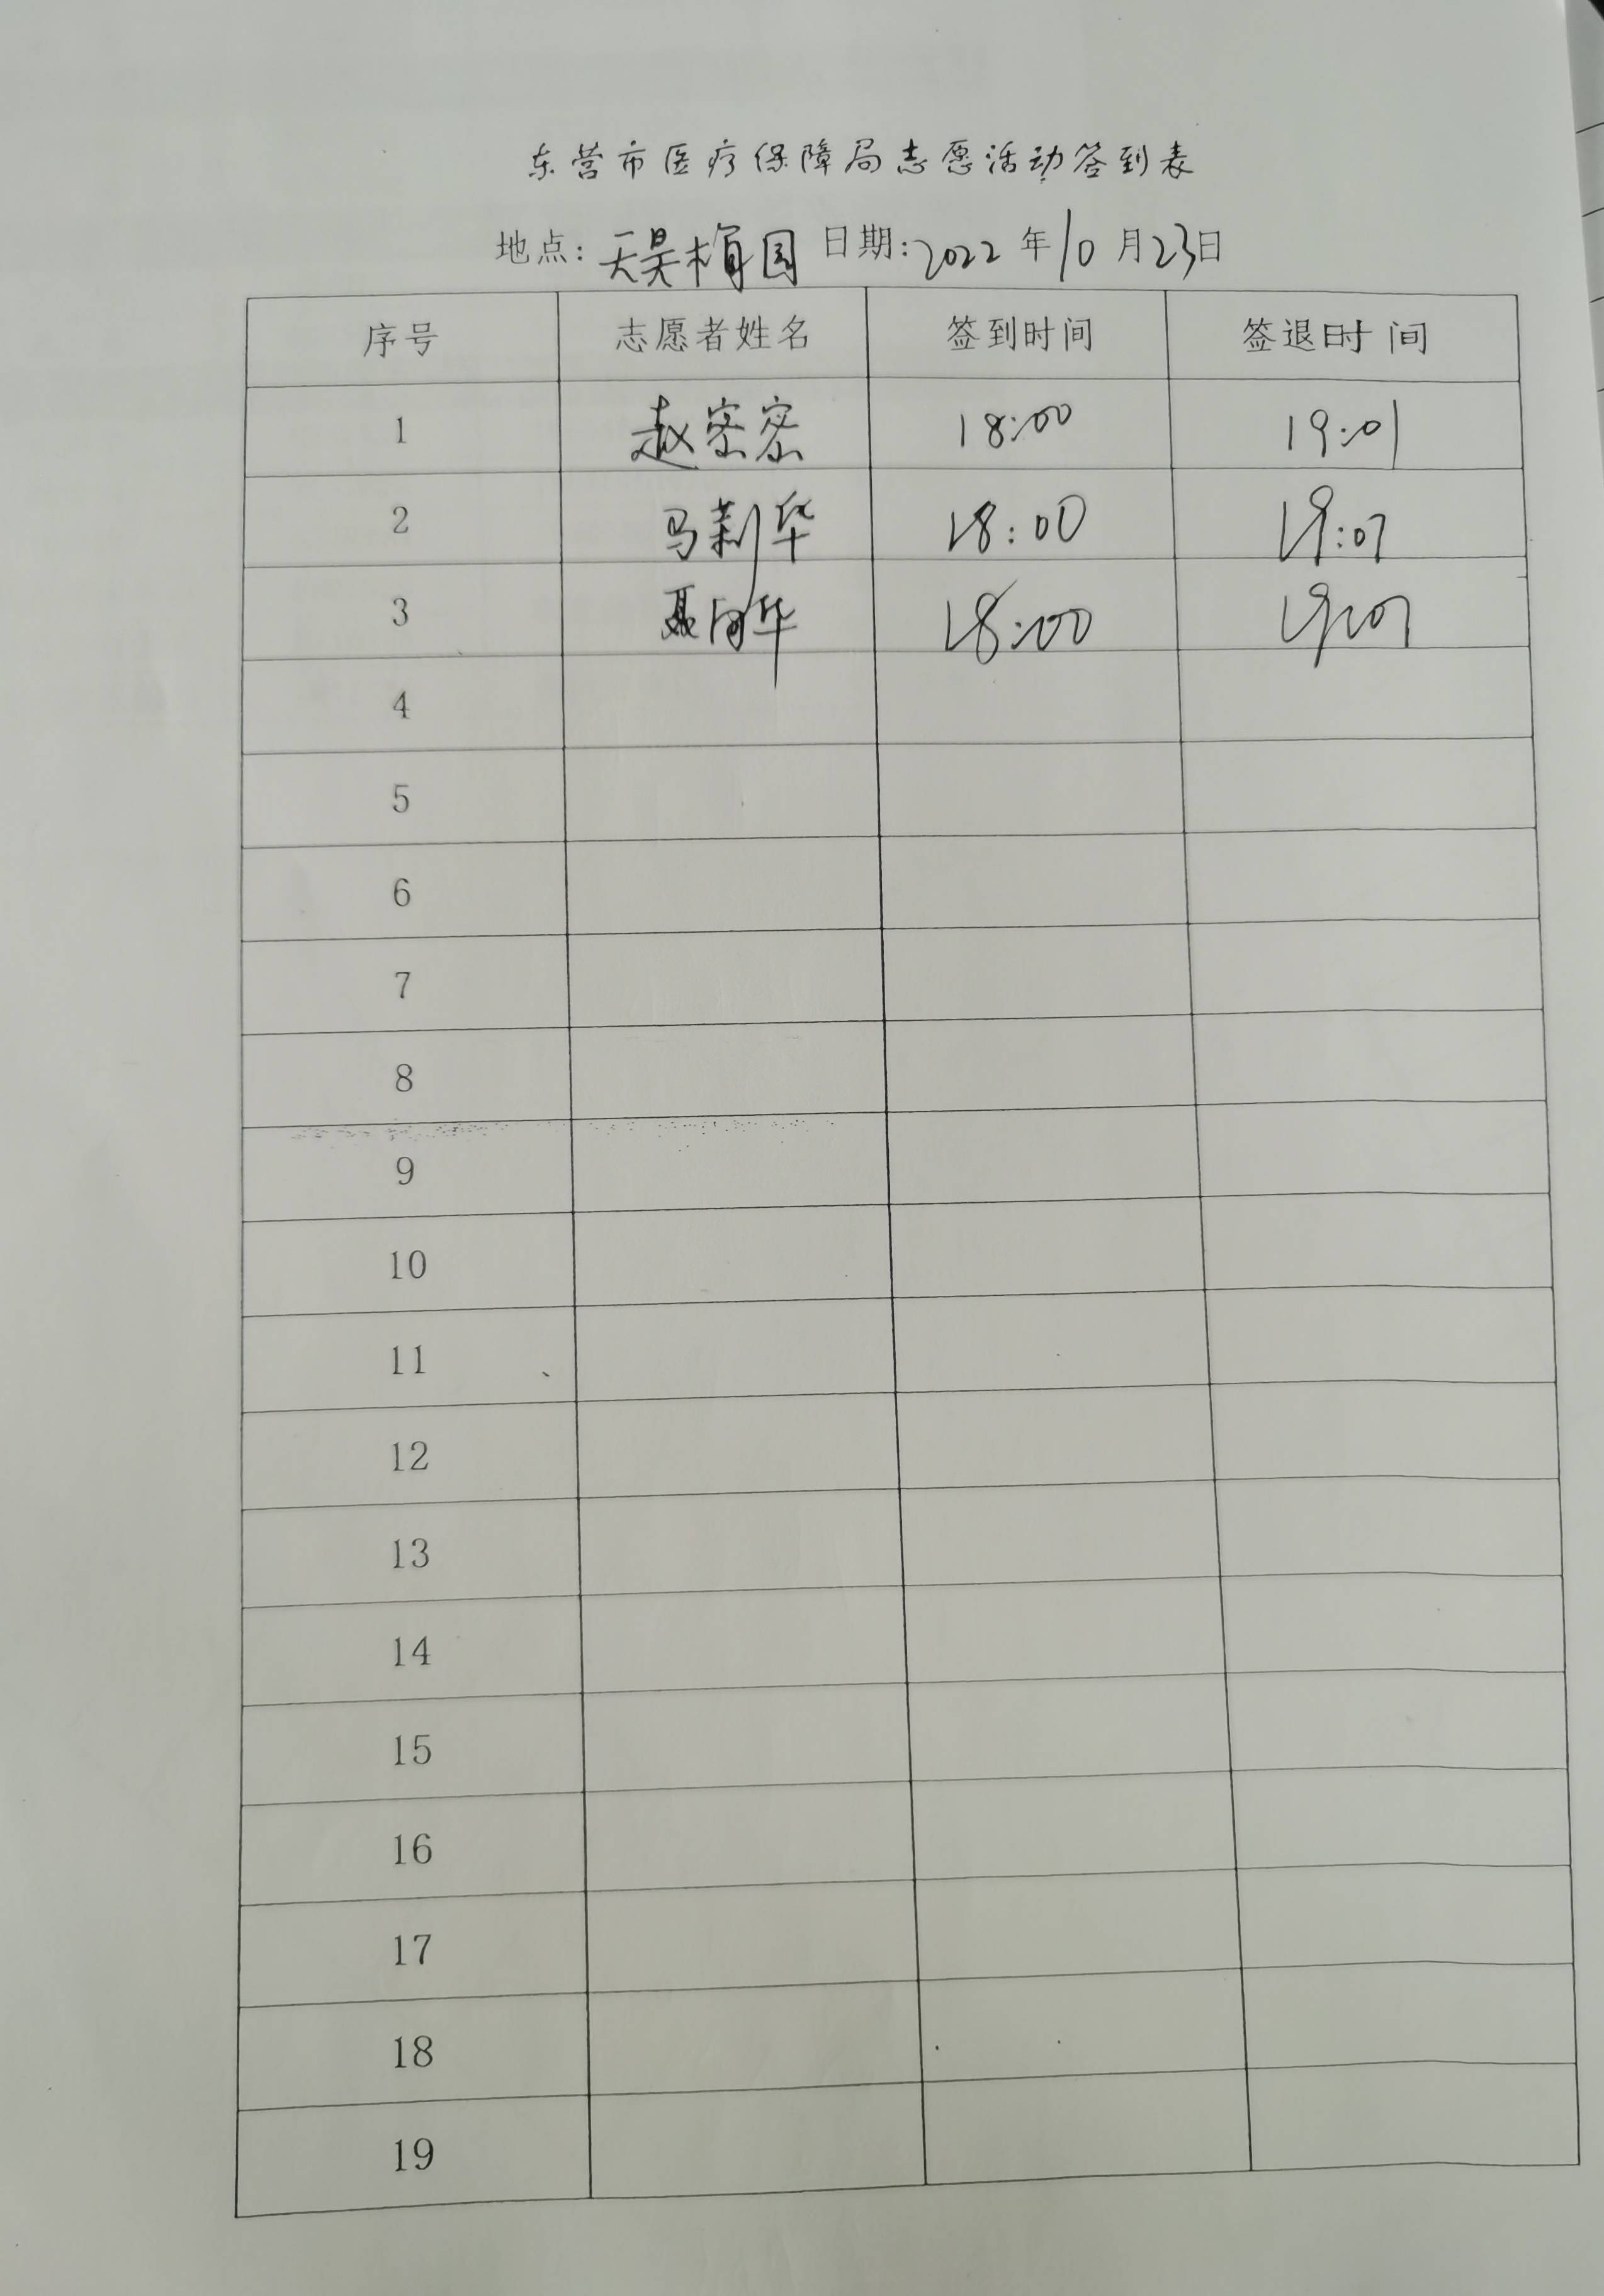 东营市医疗保障局志愿活动签到表
地点：天昊梅园 日期：2022年10月23日
序号 志愿者姓名 签到时间 签退时间
1 赵密密 18:00 19:01
2 马莉华 18:00 19:07
3 聂 华 18:00
4
5
6
7
8
9
10
11
12
13
14
15
16
17
18
19